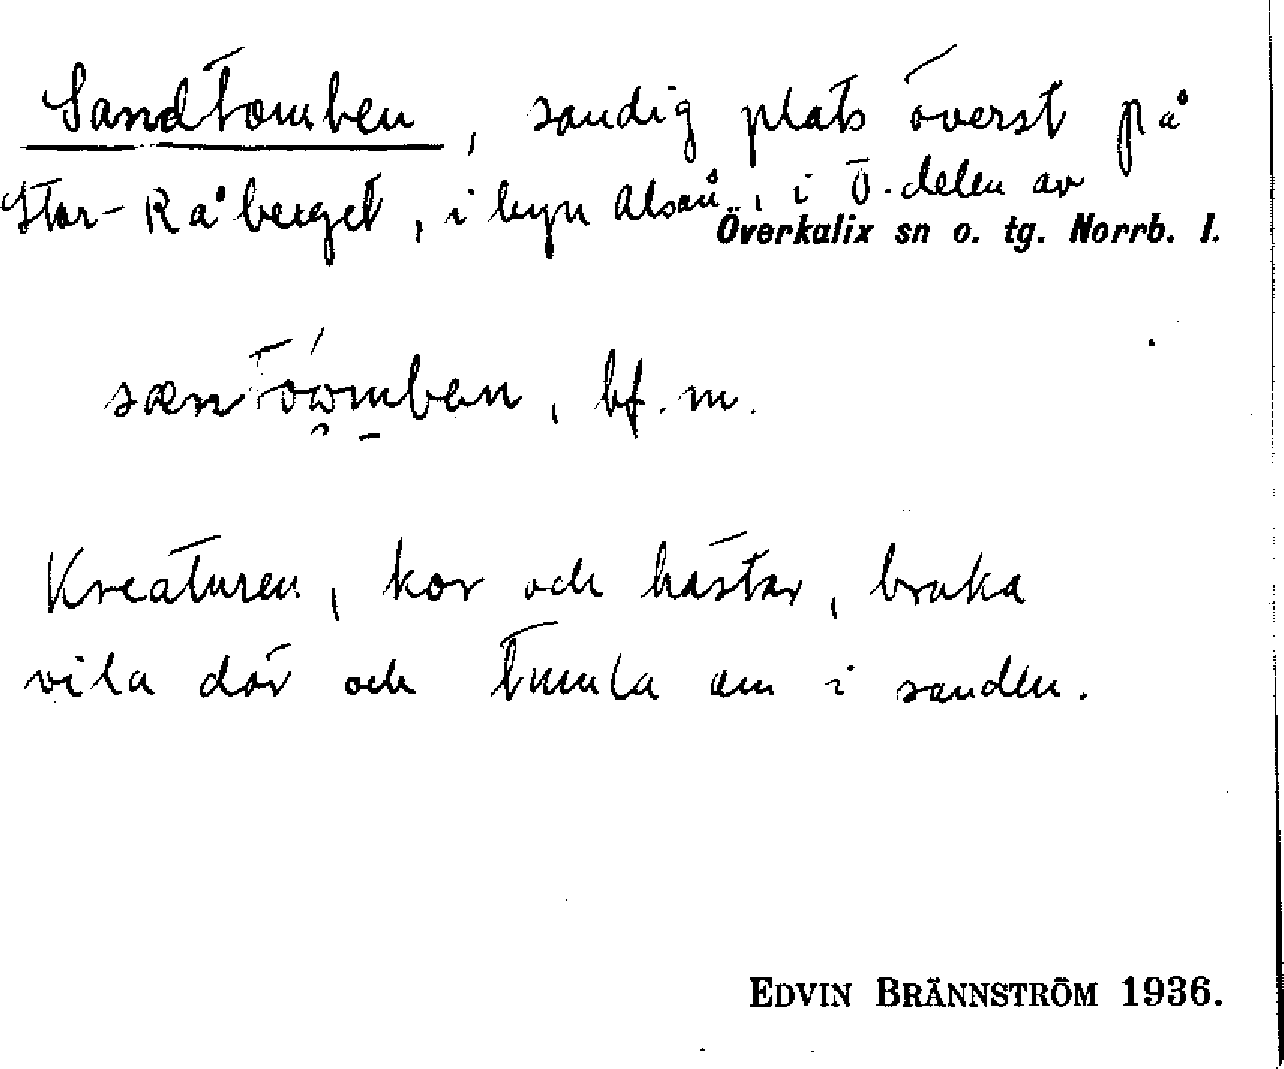 Sandtomben, sandig plats överst på
Stor-Råberget, i byn Alsån, i Ö.delen av
Överkalix sn o. tg. Norrb. l.
bf. m.
Kreaturen, kor och hästar, bruka
vila där och tumla om i sanden.
EDVIN BRÄNNSTRÖM 1936.